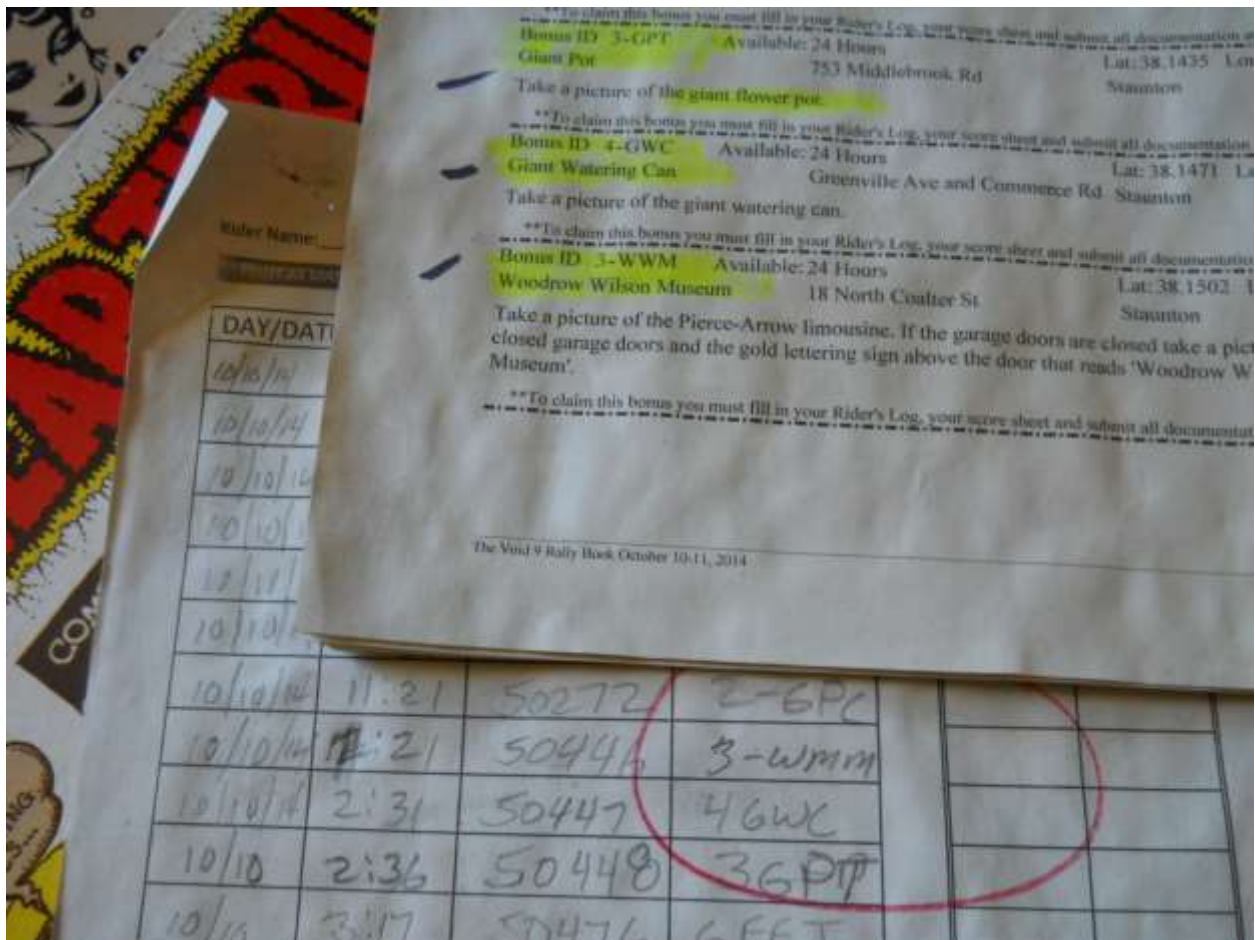 **To claim this bonus you must fill in your Rider's Log, your score sheet and submit all documentation
Bonus ID 3-GPT Available: 24 Hours Lat: 38.1435
Giant Pot 753 Middlebrook Rd Staunton
Take a picture of the giant flower pot.
**To claim this bonus you must fill in your Rider's Log, your score sheet and submit all documentation
Bonus ID 4-GWC Available: 24 Hours Lat: 38.1471
Giant Watering Can Greenville Ave and Commerce Rd Staunton
Take a picture of the giant watering can.
**To claim this bonus you must fill in your Rider's Log, your score sheet and submit all documentation
Bonus ID 3-WWM Available: 24 Hours Lat: 38.1502
Woodrow Wilson Museum 18 North Coalter St Staunton
Take a picture of the Pierce-Arrow limousine. If the garage doors are closed take a pict
closed garage doors and the gold lettering sign above the door that reads 'Woodrow W
Museum'.
**To claim this bonus you must fill in your Rider's Log, your score sheet and submit all documentat
The Void 9 Rally Book October 10-11, 2014
Rider Name:
DAY/DAT
10/10/14
10/10/14
10/10/14
10/10/1
10/10/
10/10/
10/10/14 11:21 50272 2-GPC
10/10/14 2:21 50446 3-WMM
10/10/14 2:31 50447 4GWC
10/10 2:36 50448 3GPT
10/10 3:17 50476
COM
NG